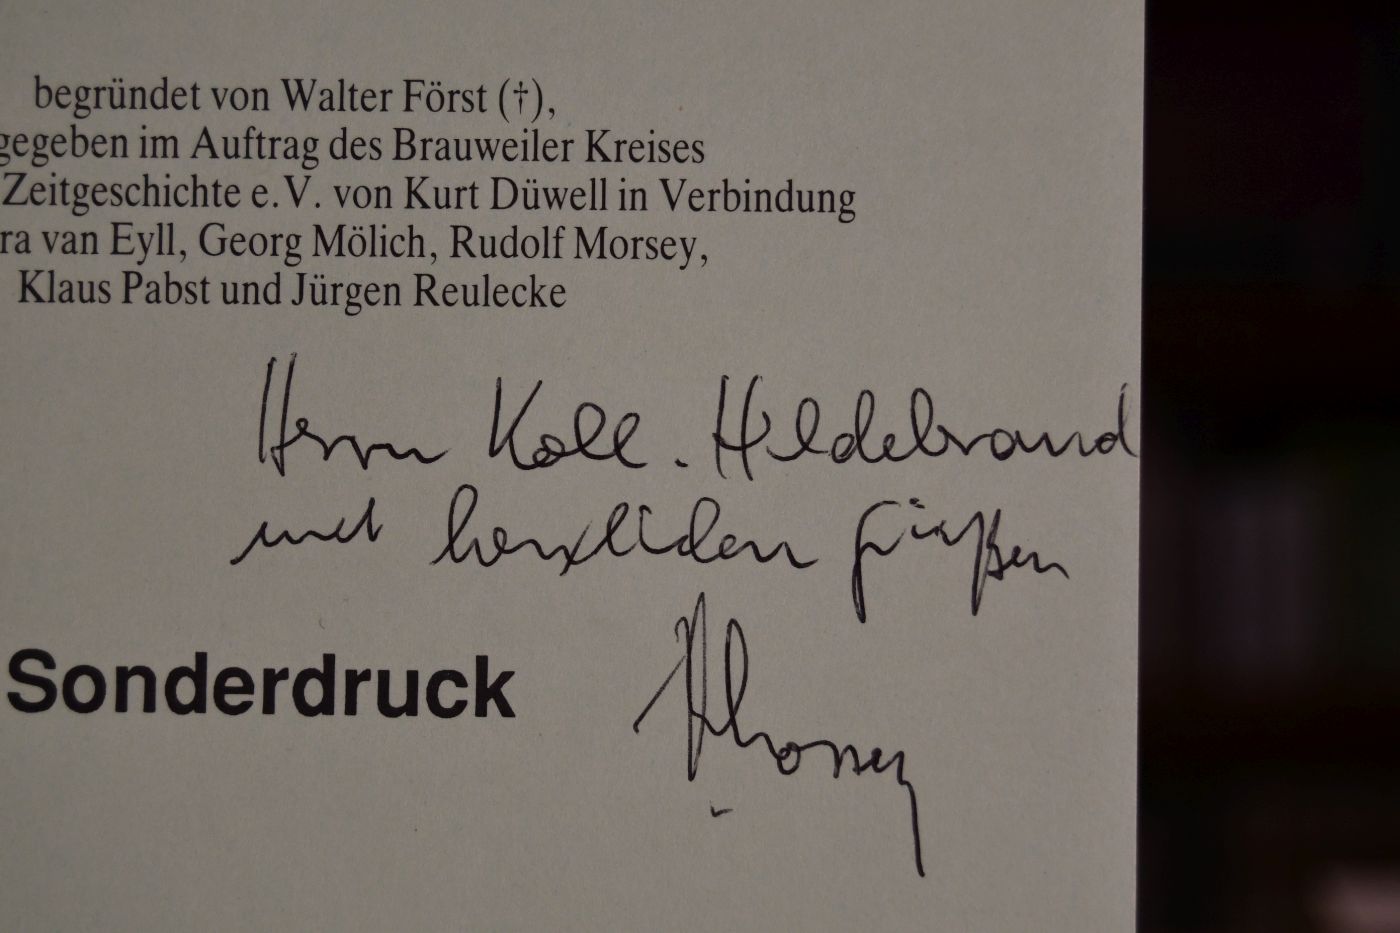 begründet von Walter Först (†),
gegeben im Auftrag des Brauweiler Kreises
Zeitgeschichte e.V. von Kurt Düwell in Verbindung
ra van Eyll, Georg Mölich, Rudolf Morsey,
Klaus Pabst und Jürgen Reulecke
Herrn Koll. Hildebrand
mit herzlichen Grüßen
Sonderdruck
RMorsey